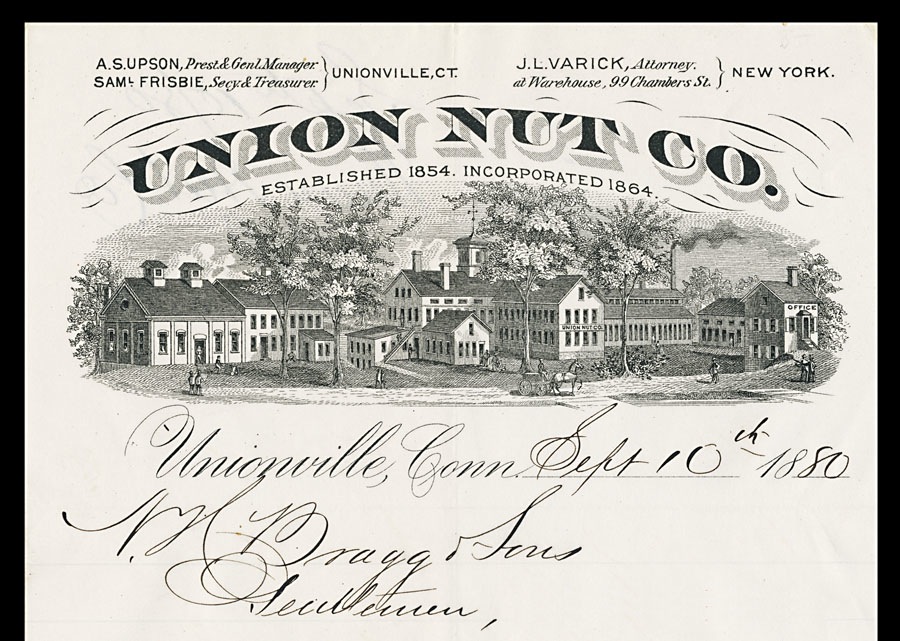 A.S. UPSON, Prest. & Genl. Manager.
SAML. FRISBIE, Secy. & Treasurer.
UNIONVILLE, CT.
J.L. VARICK, Attorney.
at Warehouse, 99 Chambers St.
NEW YORK.
UNION NUT CO.
ESTABLISHED 1854. INCORPORATED 1864.
UNION NUT CO.
OFFICE
Unionville, Conn. Sept 10th 1880
N. H. Bragg & Sons
Gentlemen,